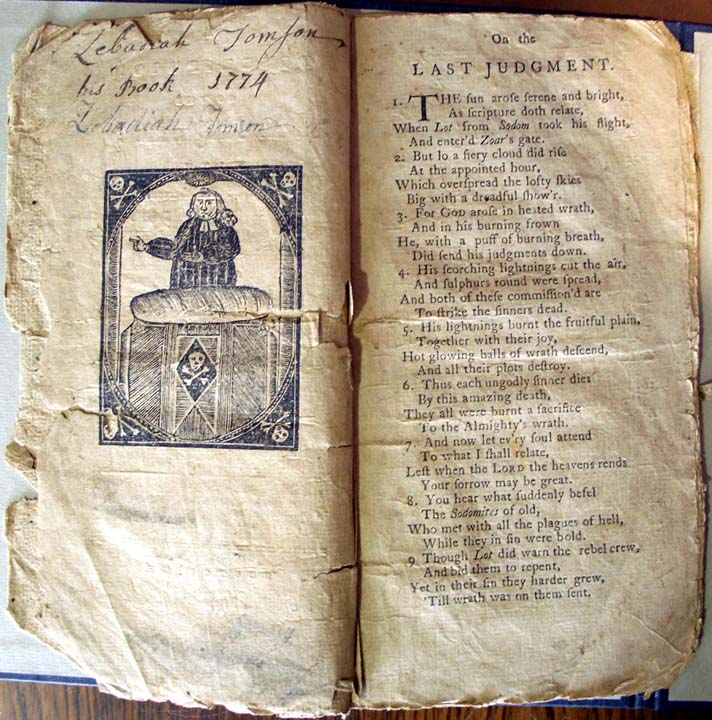 Zebadiah Tomſon
his Book 1774
Zebadiah Tomson
On the
LAST JUDGMENT.
1. THE ſun aroſe ſerene and bright,
As ſcripture doth relate,
When Lot from Sodom took his flight,
And enter'd Zoar's gate.
2. But lo a fiery cloud did riſe
At the appointed hour,
Which overſpread the lofty ſkies
Big with a dreadful ſhow'r.
3. For GOD aroſe in heated wrath,
And in his burning frown
He, with a puff of burning breath,
Did ſend his judgments down.
4. His ſcorching lightnings cut the air,
And ſulphurs round were ſpread,
And both of theſe commiſſion'd are
To ſtrike the ſinners dead.
5. His lightnings burnt the fruitful plain,
Together with their joy,
Hot glowing balls of wrath deſcend,
And all their plots deſtroy.
6. Thus each ungodly ſinner dies
By this amazing death,
They all were burnt a ſacrifice
To the Almighty's wrath.
7. And now let ev'ry ſoul attend
To what I ſhall relate,
Leſt when the LORD the heavens rends
Your ſorrow may be great.
8. You hear what ſuddenly befel
The Sodomites of old,
Who met with all the plagues of hell,
While they in ſin were bold.
9 Though Lot did warn the rebel crew,
And bid them to repent,
Yet in their ſin they harder grew,
'Till wrath was on them ſent.